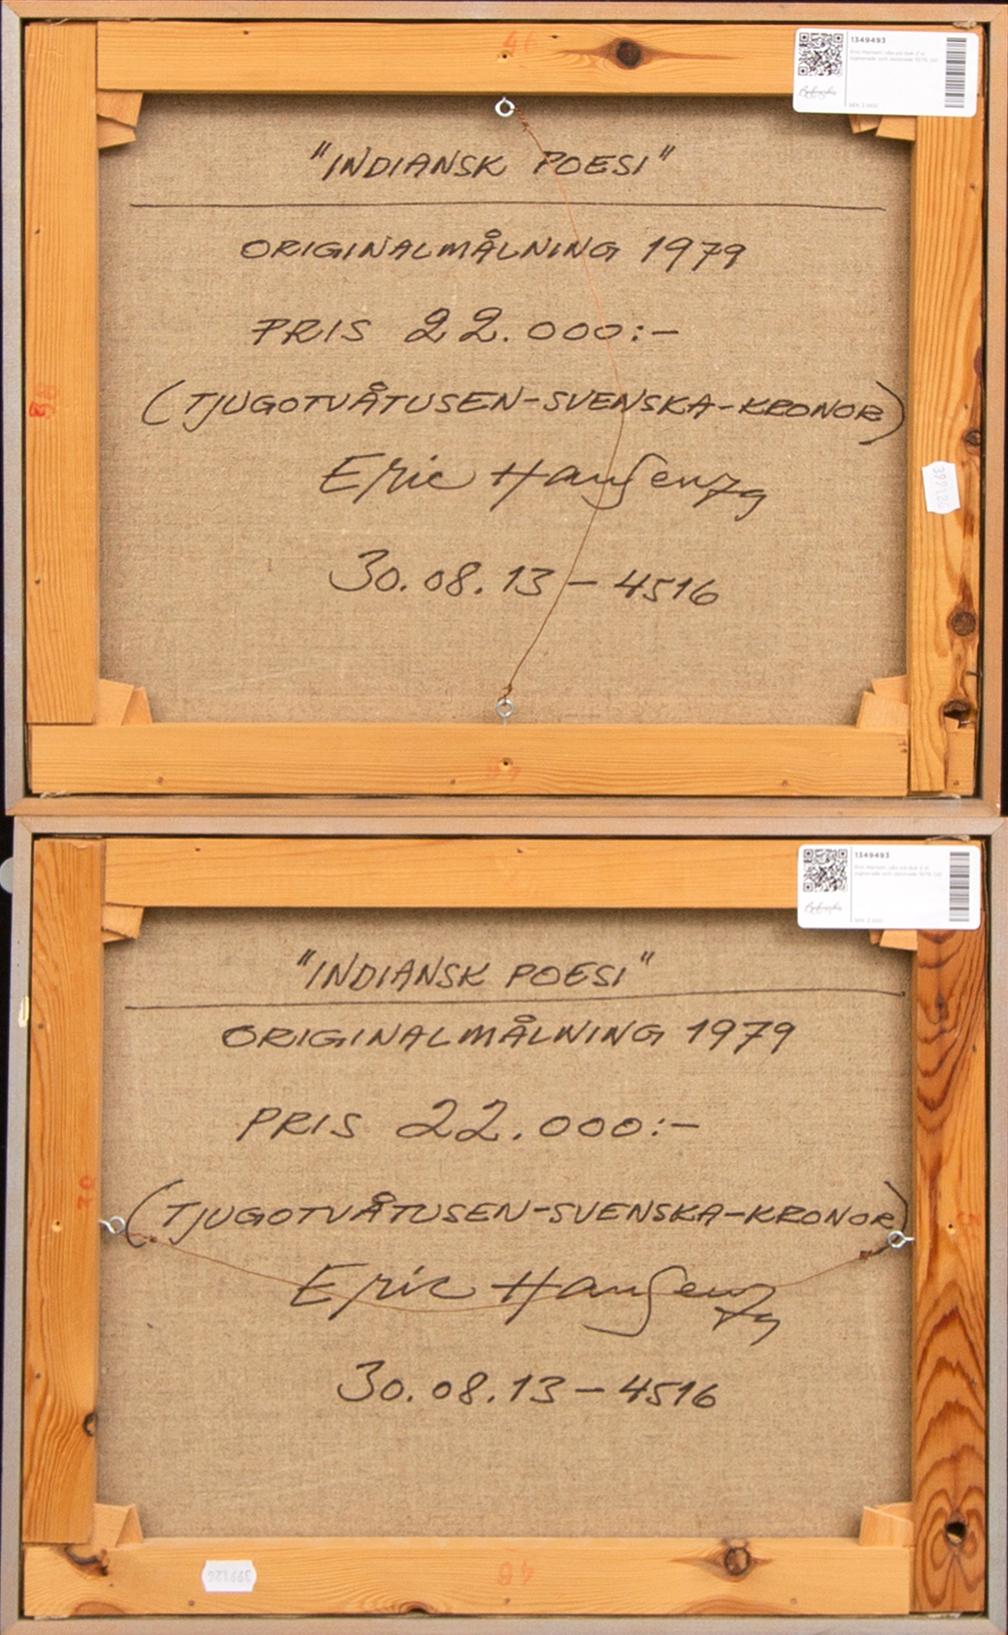 46
1349493
"INDIANSK POESI"
ORIGINALMÅLNING 1979
PRIS 22.000:-
(TJUGOTVÅTUSEN-SVENSKA-KRONOR)
Eric Hansen 79
30.08.13-4516
399126
1349493
"INDIANSK POESI"
ORIGINALMÅLNING 1979
PRIS 22.000:-
(TJUGOTVÅTUSEN-SVENSKA-KRONOR)
Eric Hansen 79
30.08.13-4516
399126